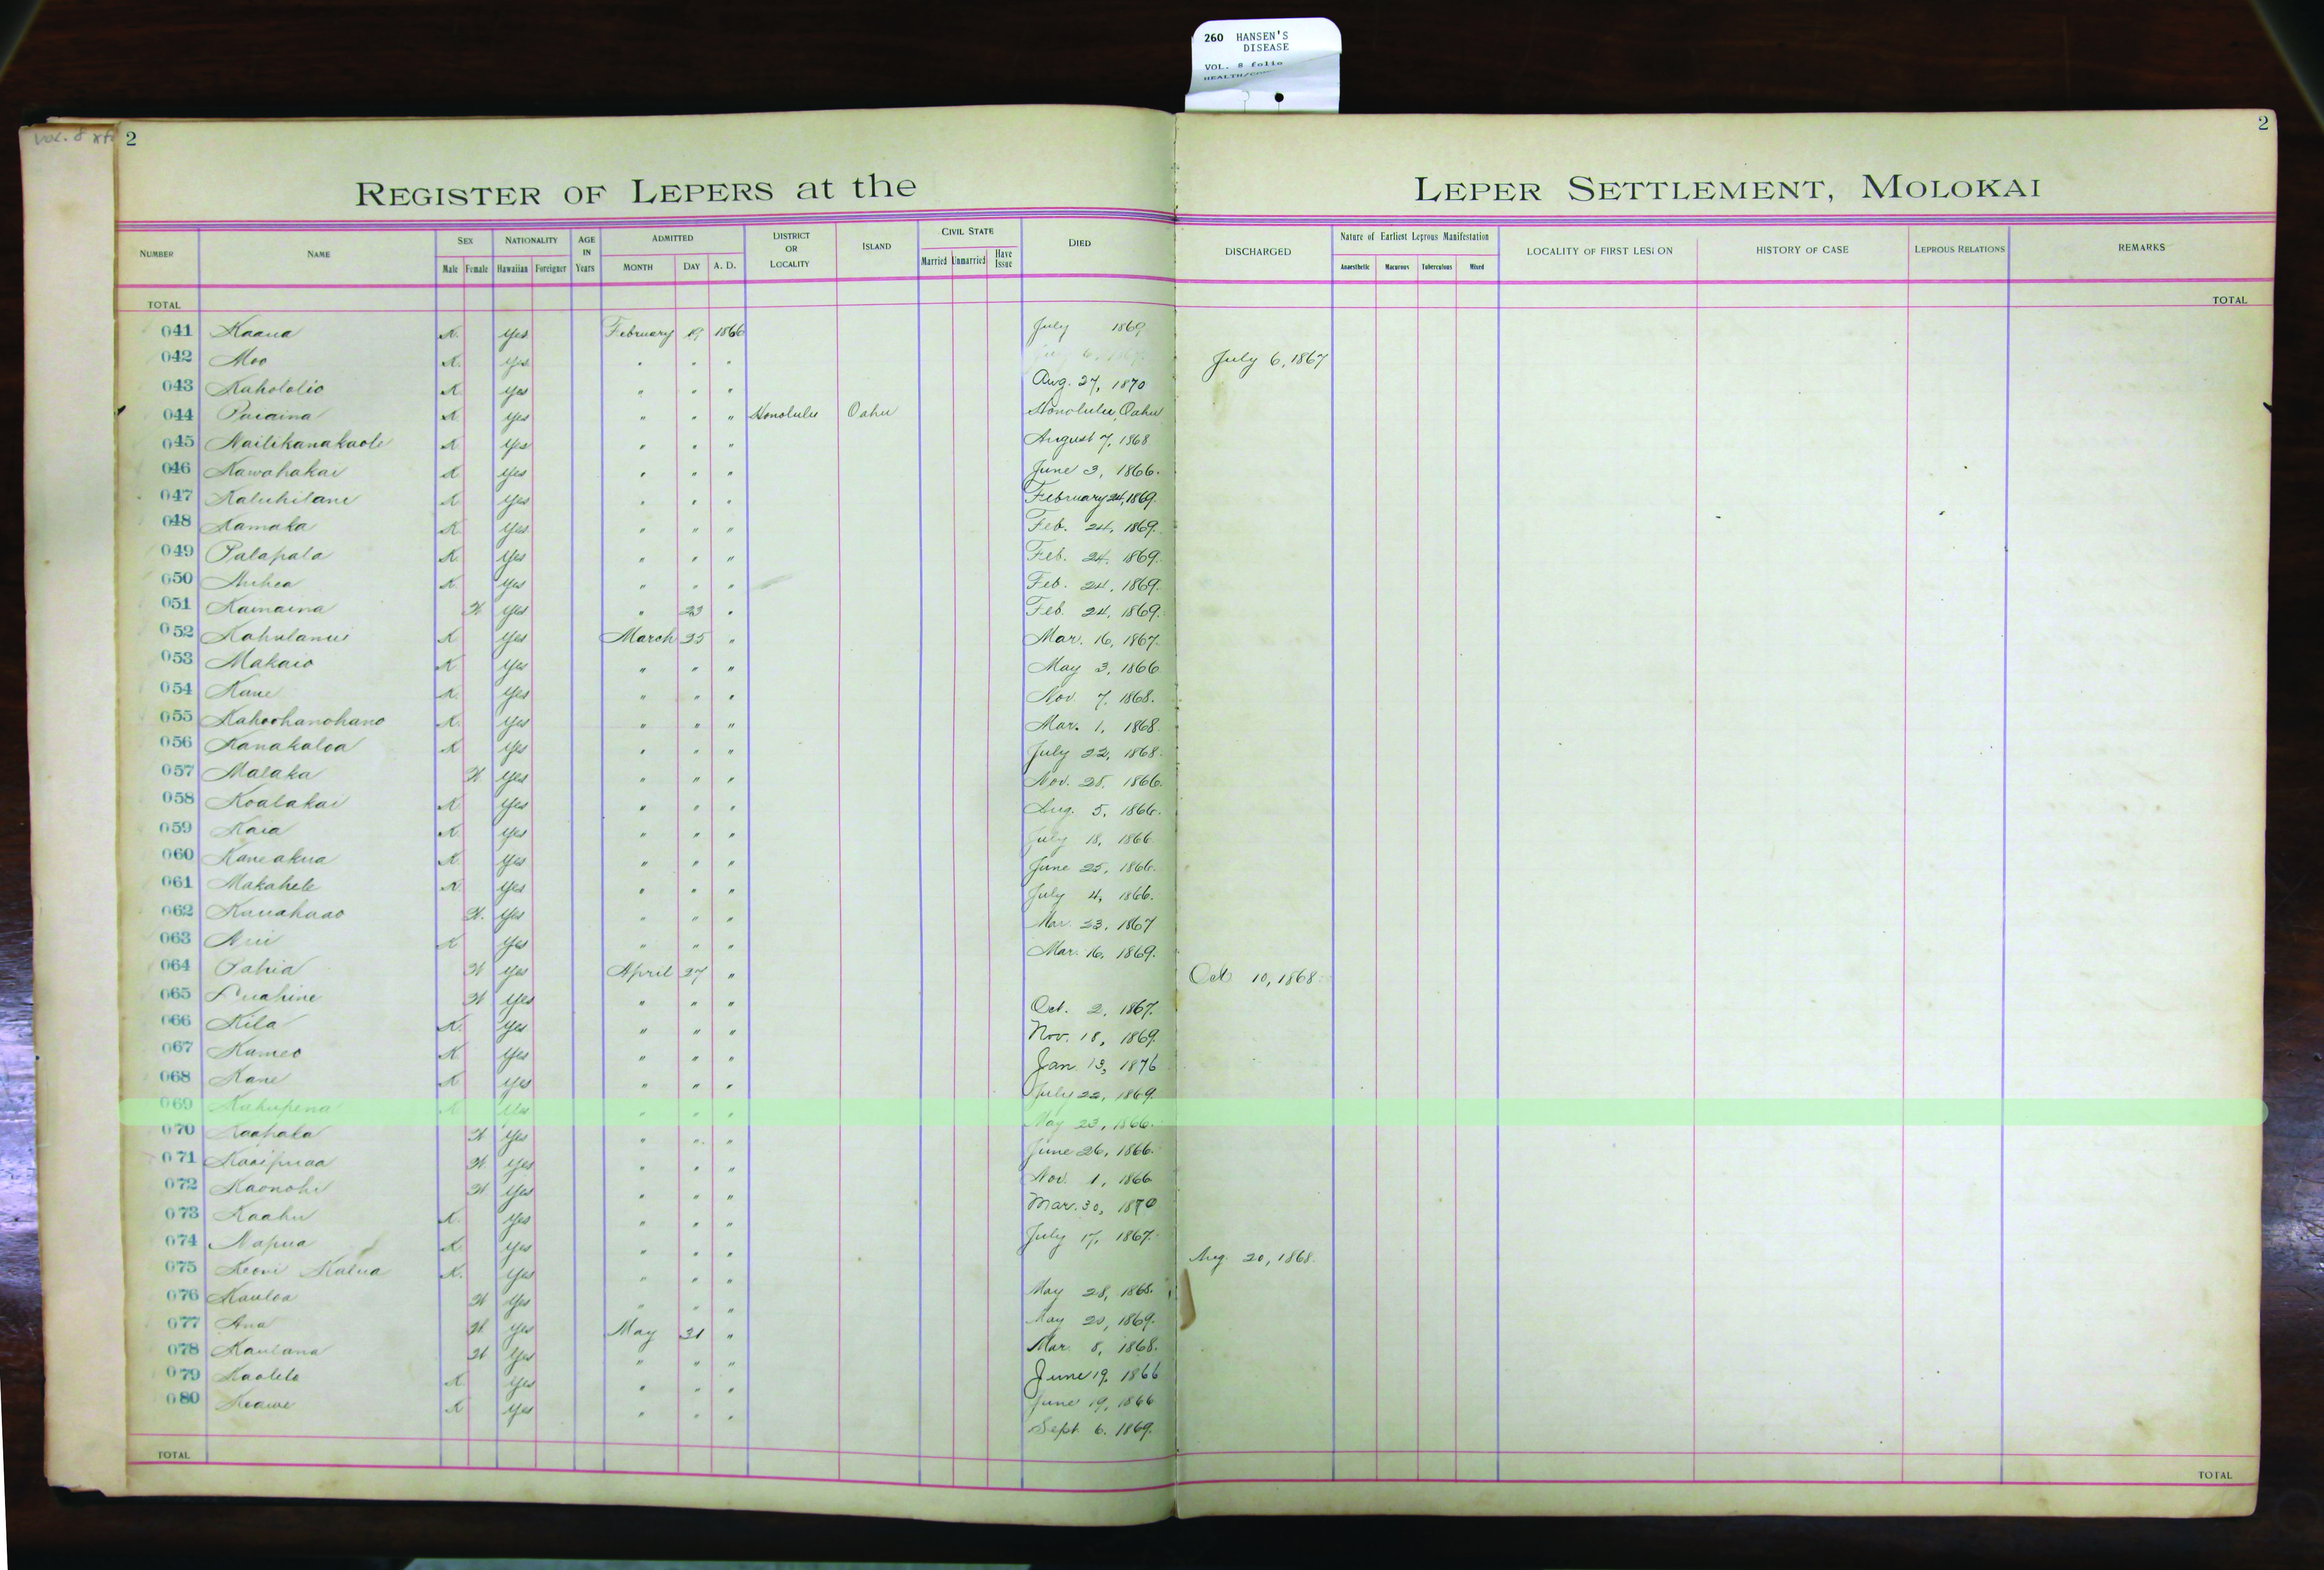 260 HANSEN'S
DISEASE
VOL. 8 folio
vol. 8
2
2
REGISTER OF LEPERS at the LEPER SETTLEMENT, MOLOKAI
NUMBER NAME SEX Male Female NATIONALITY Hawaiian Foreigner AGE IN Years ADMITTED MONTH DAY A. D. DISTRICT OR LOCALITY ISLAND CIVIL STATE Married Unmarried Have Issue DIED DISCHARGED Nature of Earliest Leprous Manifestation Anaesthetic Macurous Tuberculous Mixed LOCALITY OF FIRST LESION HISTORY OF CASE LEPROUS RELATIONS REMARKS
TOTAL TOTAL
041 Kaana K. Yes February 19 1866 July 1869
042 Moo K. Yes " " " July 6, 1867
043 Kahololio K Yes " " " Aug. 27, 1870
044 K Yes " " " Honolulu Oahu Honolulu, Oahu
045 Nailikanakaole K Yes " " " August 7, 1868
046 Kawahakai K Yes " " " June 3, 1866.
047 Kaluhilani K Yes " " " February 24, 1869.
048 Kamaka K Yes " " " Feb. 24, 1869.
049 Palapala K. Yes " " " Feb. 24, 1869.
050 K. Yes " " " Feb. 24, 1869.
051 Kamaina W Yes " 23 " Feb. 24, 1869.
052 K Yes March 25 " Mar. 16, 1867.
053 Makaio K Yes " " " May 3, 1866
054 Kane K. Yes " " " Nov. 7, 1868.
055 Kahoohanohano K. Yes " " " Mar. 1, 1868.
056 Kanakaloa K Yes " " " July 22, 1868.
057 Malaka W Yes " " " Nov. 28, 1866.
058 Koalakai K Yes " " " Aug. 5, 1866.
059 Kaia K. Yes " " " July 18, 1866.
060 Kaneakua K Yes " " " June 25, 1866.
061 Makahele K Yes " " " July 4, 1866.
062 W. Yes " " " Mar. 23, 1867
063 K Yes " " " Mar. 16, 1869.
064 Pahia W Yes April 27 " Oct 10, 1868.
065 Luahine W Yes " " " Oct. 2, 1867.
066 Kila K. Yes " " " Nov. 18, 1869.
067 Kameo K Yes " " " Jan 13, 1876
068 Kane K Yes " " " July 22, 1869.
069 Kahupena K Yes " " " May 23, 1866.
070 Kaahala W Yes " " " June 26, 1866.
071 Kaaipuaa W. Yes " " " Nov. 1, 1866
072 Kaonohi W Yes " " " Mar. 30, 1870
073 Kaahu K. Yes " " " July 17, 1867.
074 Napua K Yes " " " Aug. 20, 1868.
075 Keoni Kalua K. Yes " " " May 28, 1868.
076 Kauloa W Yes " " " May 20, 1869.
077 Ana W. Yes May 31 " Mar. 8, 1868.
078 Kaulana W Yes " " " June 19, 1866
079 Kaolelo K Yes " " " June 19, 1866
080 Keawe K Yes " " " Sept. 6, 1869.
TOTAL TOTAL